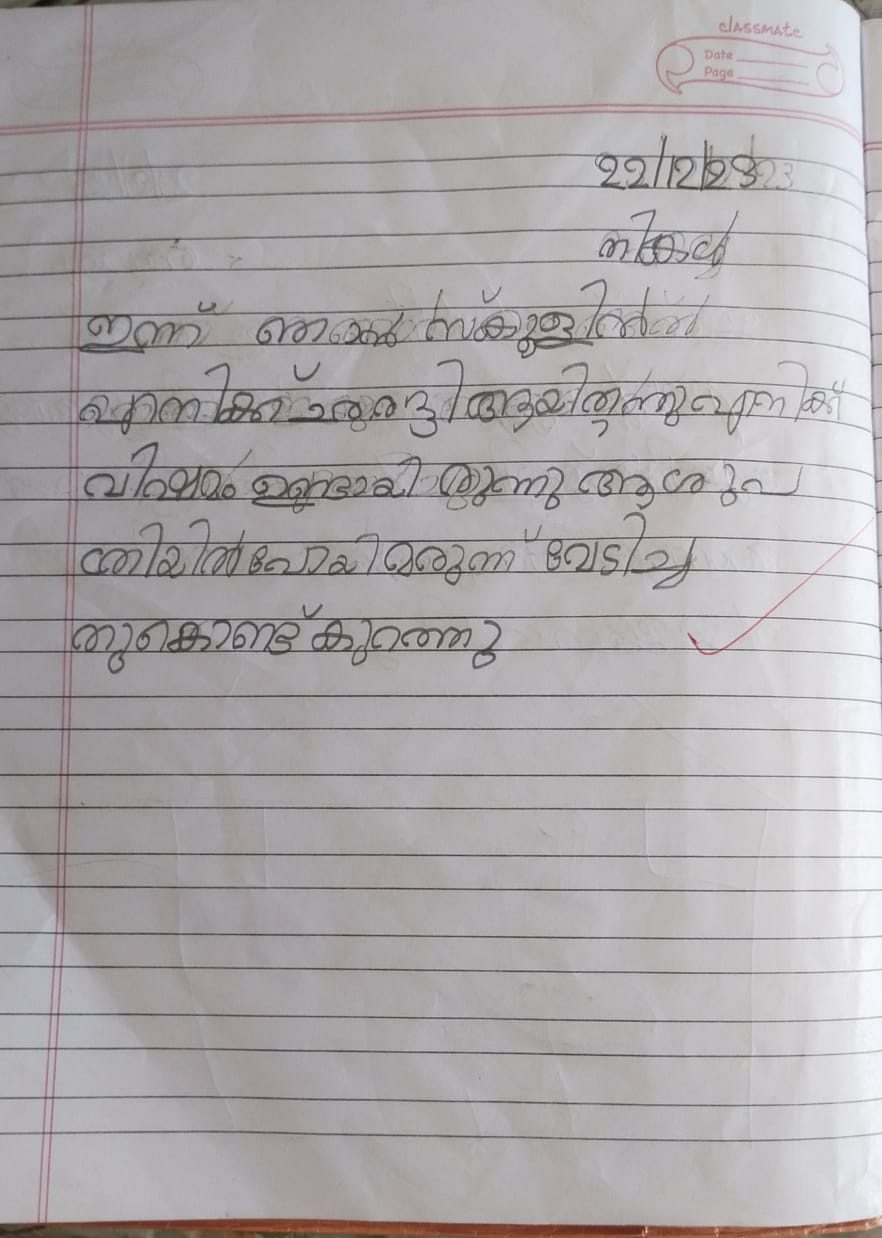 classmate
Date
Page
22/12/23
ഇന്ന് ഞങ്ങൾ സ്കൂളിൽ
എനിക്ക് ഛർദ്ദി ആയിരുന്നു എനിക്ക്
വിഷമം ഉണ്ടായിരുന്നു ആശുപ
ത്രിയിൽ പോയി മരുന്ന് വേടിച്ചു
തുകൊണ്ട് കുറഞ്ഞു